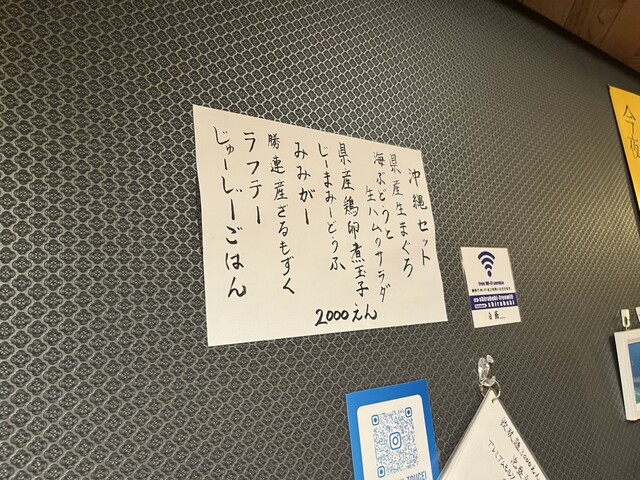 沖縄セット
県産生まぐろ
海ぶどうと
生ハムのサラダ
県産鶏卵煮玉子
じーまみーどうふ
みみがー
勝連産ざるもずく
ラフテー
じゅーしーごはん
2000えん
今夜
Free Wi-Fi service